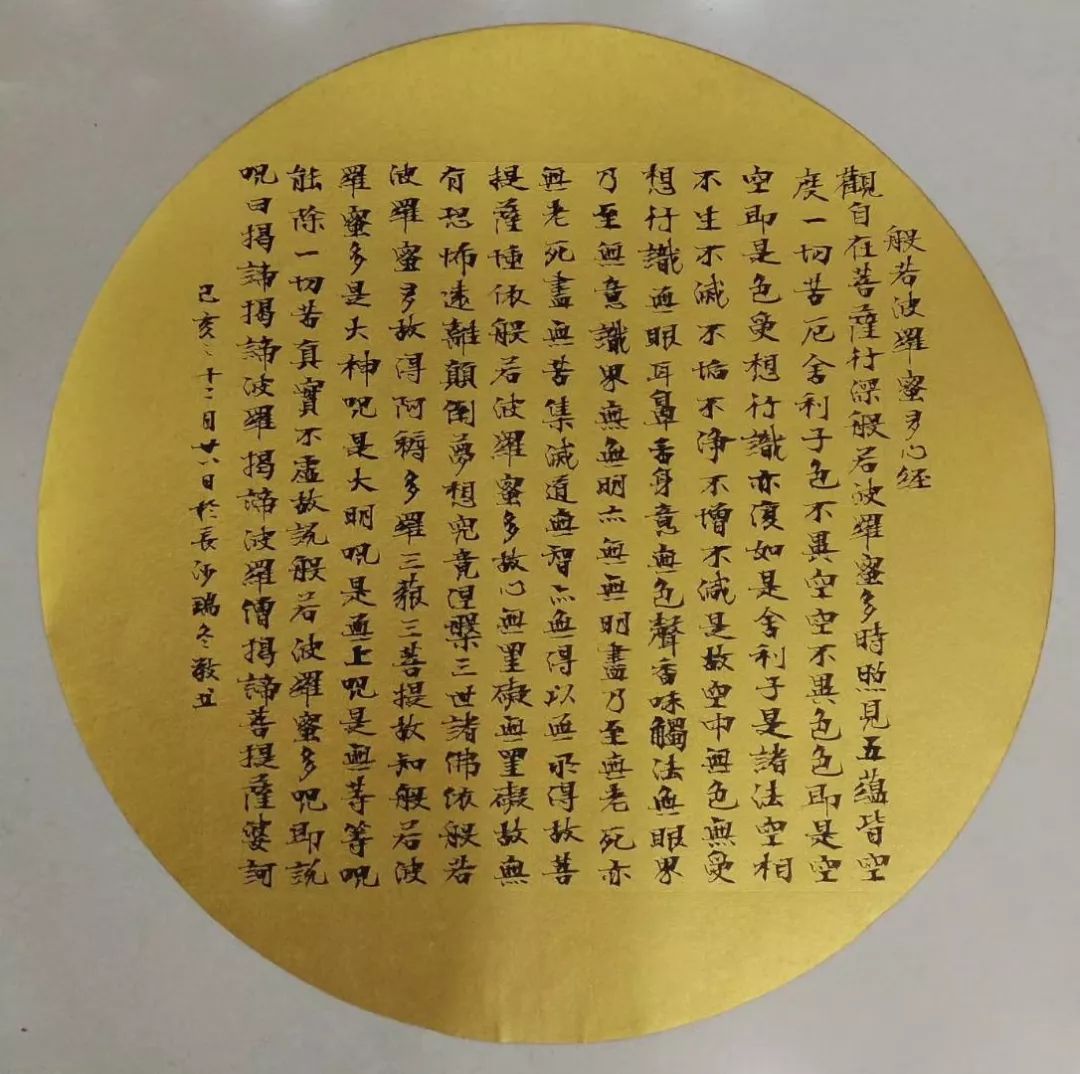 般若波羅蜜多心経
觀自在菩薩行深般若波羅蜜多時照見五蕴皆空
度一切苦厄舍利子色不異空空不異色色即是空
空即是色受想行識亦復如是舍利子是諸法空相
不生不滅不垢不淨不增不减是故空中無色無受
想行識無眼耳鼻舌身意無色聲香味觸法無眼界
乃至無意識界無無明亦無無明盡乃至無老死亦
無老死盡無苦集滅道無智亦無得以無所得故菩
提薩埵依般若波羅蜜多故心無罣礙無罣礙故無
有恐怖遠離顛倒夢想究竟涅槃三世諸佛依般若
波羅蜜多故得阿耨多羅三藐三菩提故知般若波
羅蜜多是大神咒是大明咒是無上咒是無等等咒
能除一切苦真實不虛故説般若波羅蜜多咒即説
咒曰揭諦揭諦波羅揭諦波羅僧揭諦菩提薩婆訶
己亥年十二月廿八日於長沙瑞冬敬書